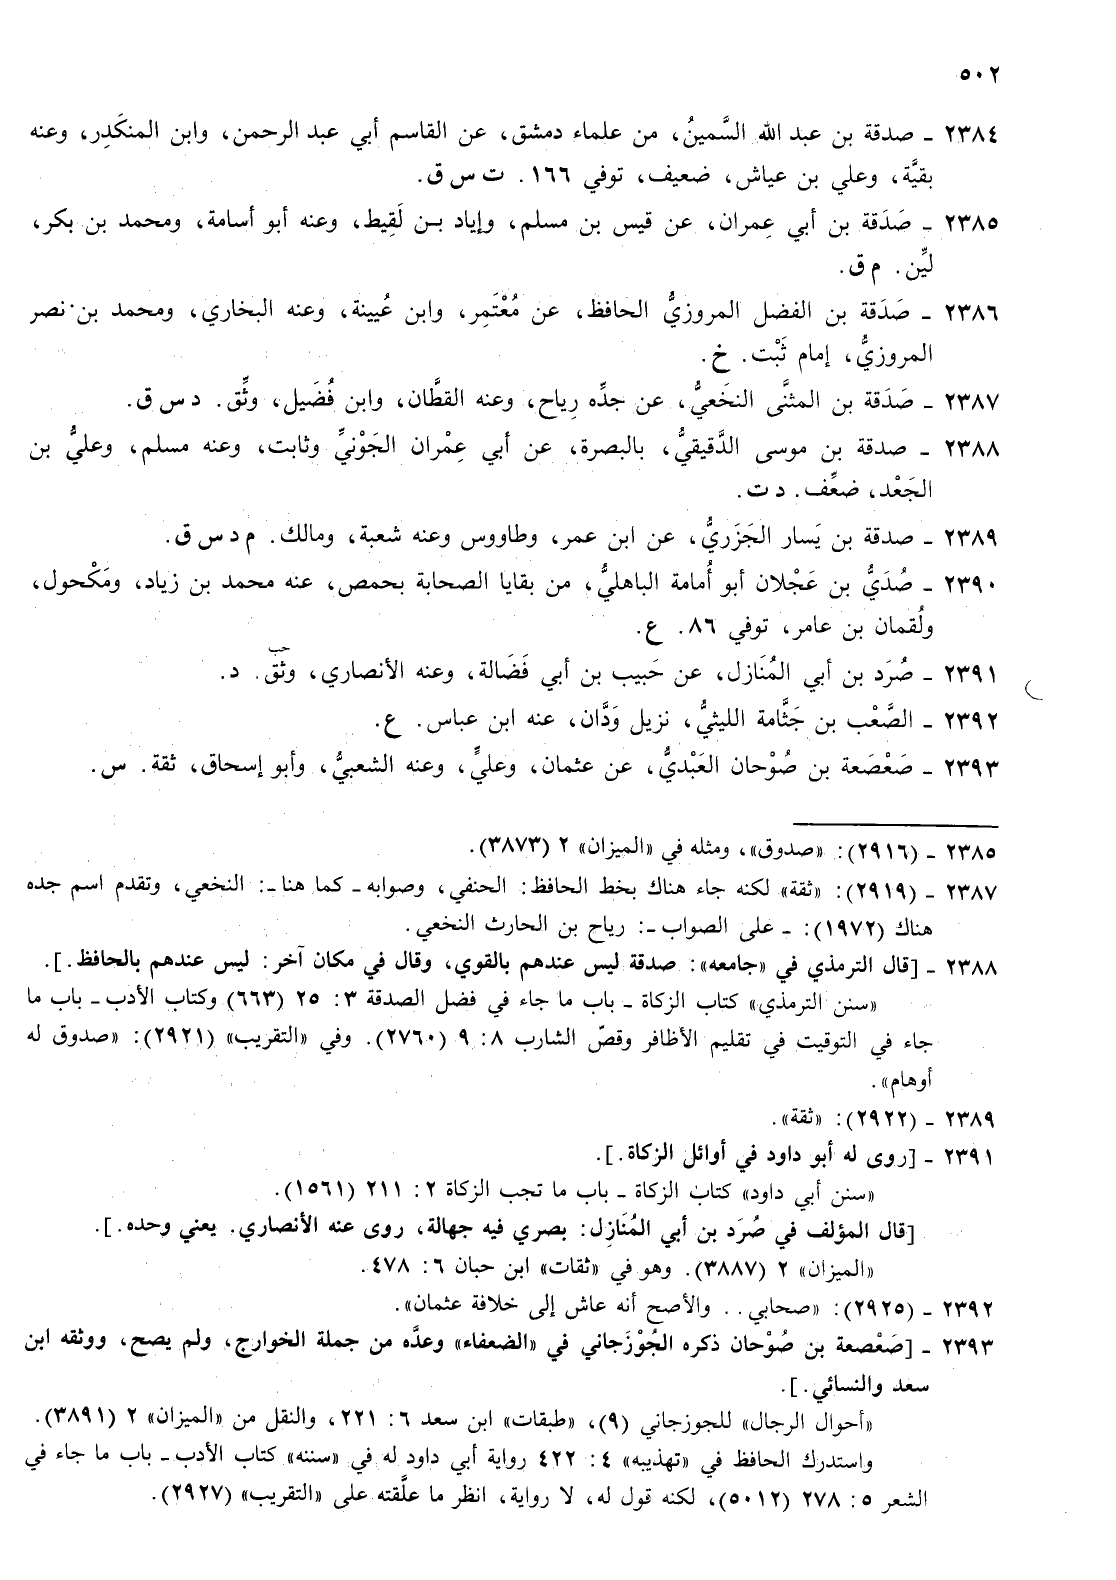 ٥٠٢
٢٣٨٤ ـ صدقة بن عبد الله السَّمينُ، من علماء دمشق، عن القاسم أبي عبد الرحمن، وابن المنكَدِر، وعنه
بقيَّة، وعلي بن عياش، ضعيف، توفي ١٦٦. ت س ق.
٢٣٨٥ ـ صَدَقة بن أبي عِمران، عن قيس بن مسلم، وإياد بـن لَقِيط، وعنه أبو أسامة، ومحمد بن بكر،
ليِّن. م ق.
٢٣٨٦ ـ صَدَقة بن الفضل المروزيُّ الحافظ، عن مُعْتَمِر، وابن عُيينة، وعنه البخاري، ومحمد بن نصر
المروزيُّ، إمام ثَبْت. خ.
٢٣٨٧ ـ صَدَقة بن المثنَّى النخَعيُّ، عن جدِّه رِياح، وعنه القطَّان، وابن فُضَيل، وثِّق. د س ق.
٢٣٨٨ ـ صدقة بن موسى الدَّقيقيُّ، بالبصرة، عن أبي عِمْران الجَوْنيِّ وثابت، وعنه مسلم، وعليُّ بن
الجَعْد، ضعِّف. د ت.
٢٣٨٩ ـ صدقة بن يَسار الجَزَريُّ، عن ابن عمر، وطاووس وعنه شعبة، ومالك. م د س ق.
٢٣٩٠ ـ صُدَيُّ بن عَجْلان أبو أُمامة الباهليُّ، من بقايا الصحابة بحمص، عنه محمد بن زياد، ومَكْحول،
ولُقمان بن عامر، توفي ٨٦. ع.
٢٣٩١ ـ صُرَد بن أبي المُنَازل، عن حَبيب بن أبي فَضَالة، وعنه الأنصاري، وثق. د.
٢٣٩٢ ـ الصَّعْب بن جَثَّامة الليثيُّ، نزيل وَدَّان، عنه ابن عباس. ع.
٢٣٩٣ ـ صَعْصَعة بن صُوْحان العَبْديُّ، عن عثمان، وعليٍّ، وعنه الشعبيُّ، وأبو إسحاق، ثقة. س.
٢٣٨٥ ـ (٢٩١٦): «صدوق»، ومثله في «الميزان» ٢ (٣٨٧٣).
٢٣٨٧ ـ (٢٩١٩): «ثقة» لكنه جاء هناك بخط الحافظ: الحنفي، وصوابه ـ كما هنا ـ: النخعي، وتقدم اسم جده
هناك (١٩٧٢): ـ على الصواب ـ: رياح بن الحارث النخعي.
٢٣٨٨ ـ [قال الترمذي في «جامعه»: صدقة ليس عندهم بالقوي، وقال في مكان آخر: ليس عندهم بالحافظ.].
«سنن الترمذي» كتاب الزكاة ـ باب ما جاء في فضل الصدقة ٣: ٢٥ (٦٦٣) وكتاب الأدب ـ باب ما
جاء في التوقيت في تقليم الأظافر وقصّ الشارب ٨: ٩ (٢٧٦٠). وفي «التقريب» (٢٩٢١): «صدوق له
أوهام».
٢٣٨٩ ـ (٢٩٢٢): «ثقة».
٢٣٩١ ـ [روى له أبو داود في أوائل الزكاة.].
«سنن أبي داود» كتاب الزكاة ـ باب ما تجب الزكاة ٢: ٢١١ (١٥٦١).
[قال المؤلف في صُرَد بن أبي المُنَازِل: بصري فيه جهالة، روى عنه الأنصاري. يعني وحده.].
«الميزان» ٢ (٣٨٨٧). وهو في «ثقات» ابن حبان ٦: ٤٧٨.
٢٣٩٢ ـ (٢٩٢٥): «صحابي.. والأصح أنه عاش إلى خلافة عثمان».
٢٣٩٣ ـ [صَعْصعة بن صُوْحان ذكره الجُوْزَجاني في «الضعفاء» وعدَّه من جملة الخوارج، ولم يصح، ووثقه ابن
سعد والنسائي.].
«أحوال الرجال» للجوزجاني (٩)، «طبقات» ابن سعد ٦: ٢٢١، والنقل من «الميزان» ٢ (٣٨٩١).
واستدرك الحافظ في «تهذيبه» ٤: ٤٢٢ رواية أبي داود له في «سننه» كتاب الأدب ـ باب ما جاء في
الشعر ٥: ٢٧٨ (٥٠١٢)، لكنه قول له، لا رواية، انظر ما علَّقته على «التقريب» (٢٩٢٧).